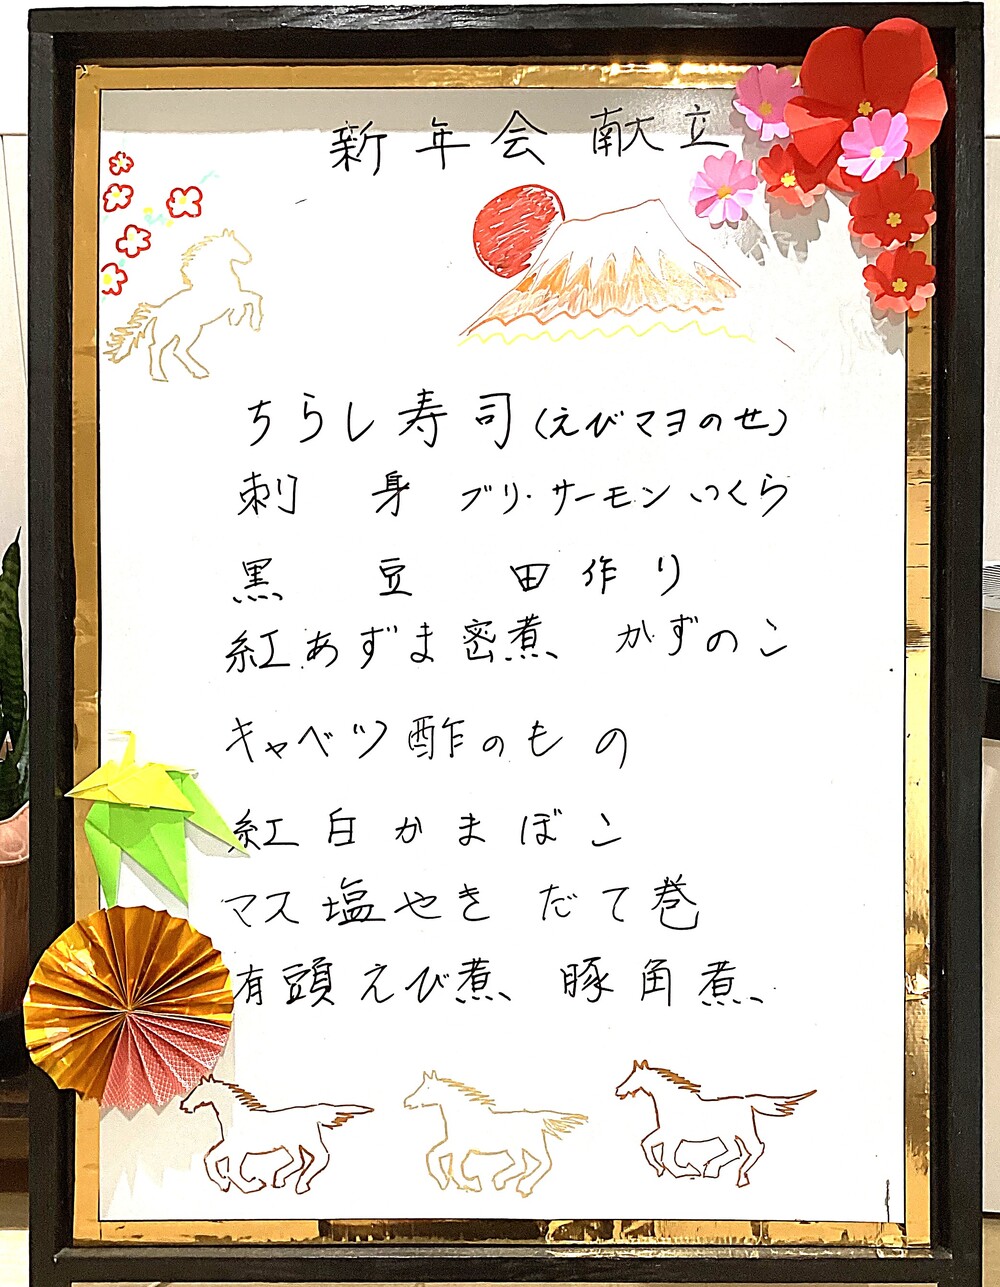 新年会 献立
ちらし寿司(えびマヨのせ)
刺 身 ブリ・サーモン いくら
黒 豆 田作り
紅あずま密煮 かずのこ
キャベツ酢のもの
紅白かまぼこ
マス塩やき だて巻
有頭えび煮 豚角煮